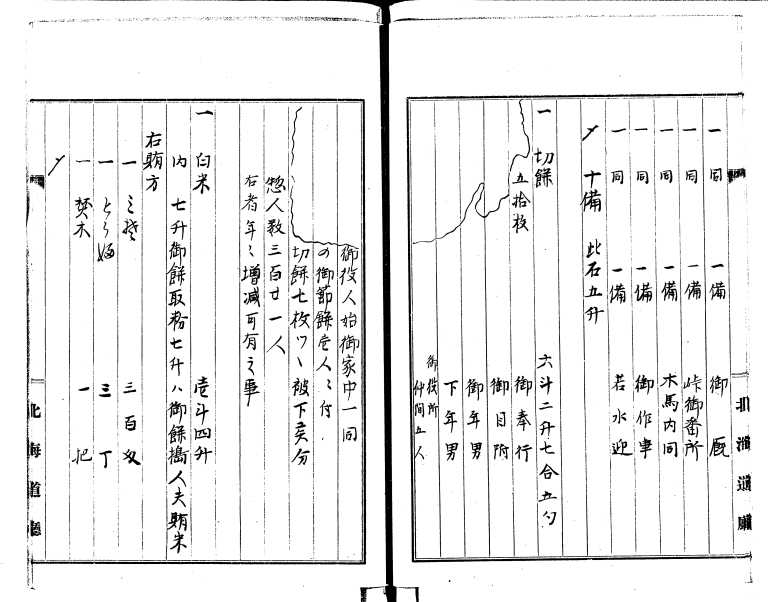 一 同 一備 御厩
一 同 一備 峠御番所
一 同 一備 木馬内同
一 同 一備 御作事
一 同 一備 若水迎
〆十備 此石五升
一 切餅 六斗二升七合五勺
五拾枚 御奉行
御目附
御年男
下年男
御役所
仲間五人
北海道廳
御役人始御家中一同
の御節餅壱人ニ付
切餅七枚ツヽ被下候分
惣人数三百廿一人
右者年々増減可有之事
一 白米 壱斗四升
内 七升御餅取粉七升ハ御餅搗人夫賄米
右賄方
一 三百
一 とうふ 三丁
一 焚木 一把
〆
北海道廳